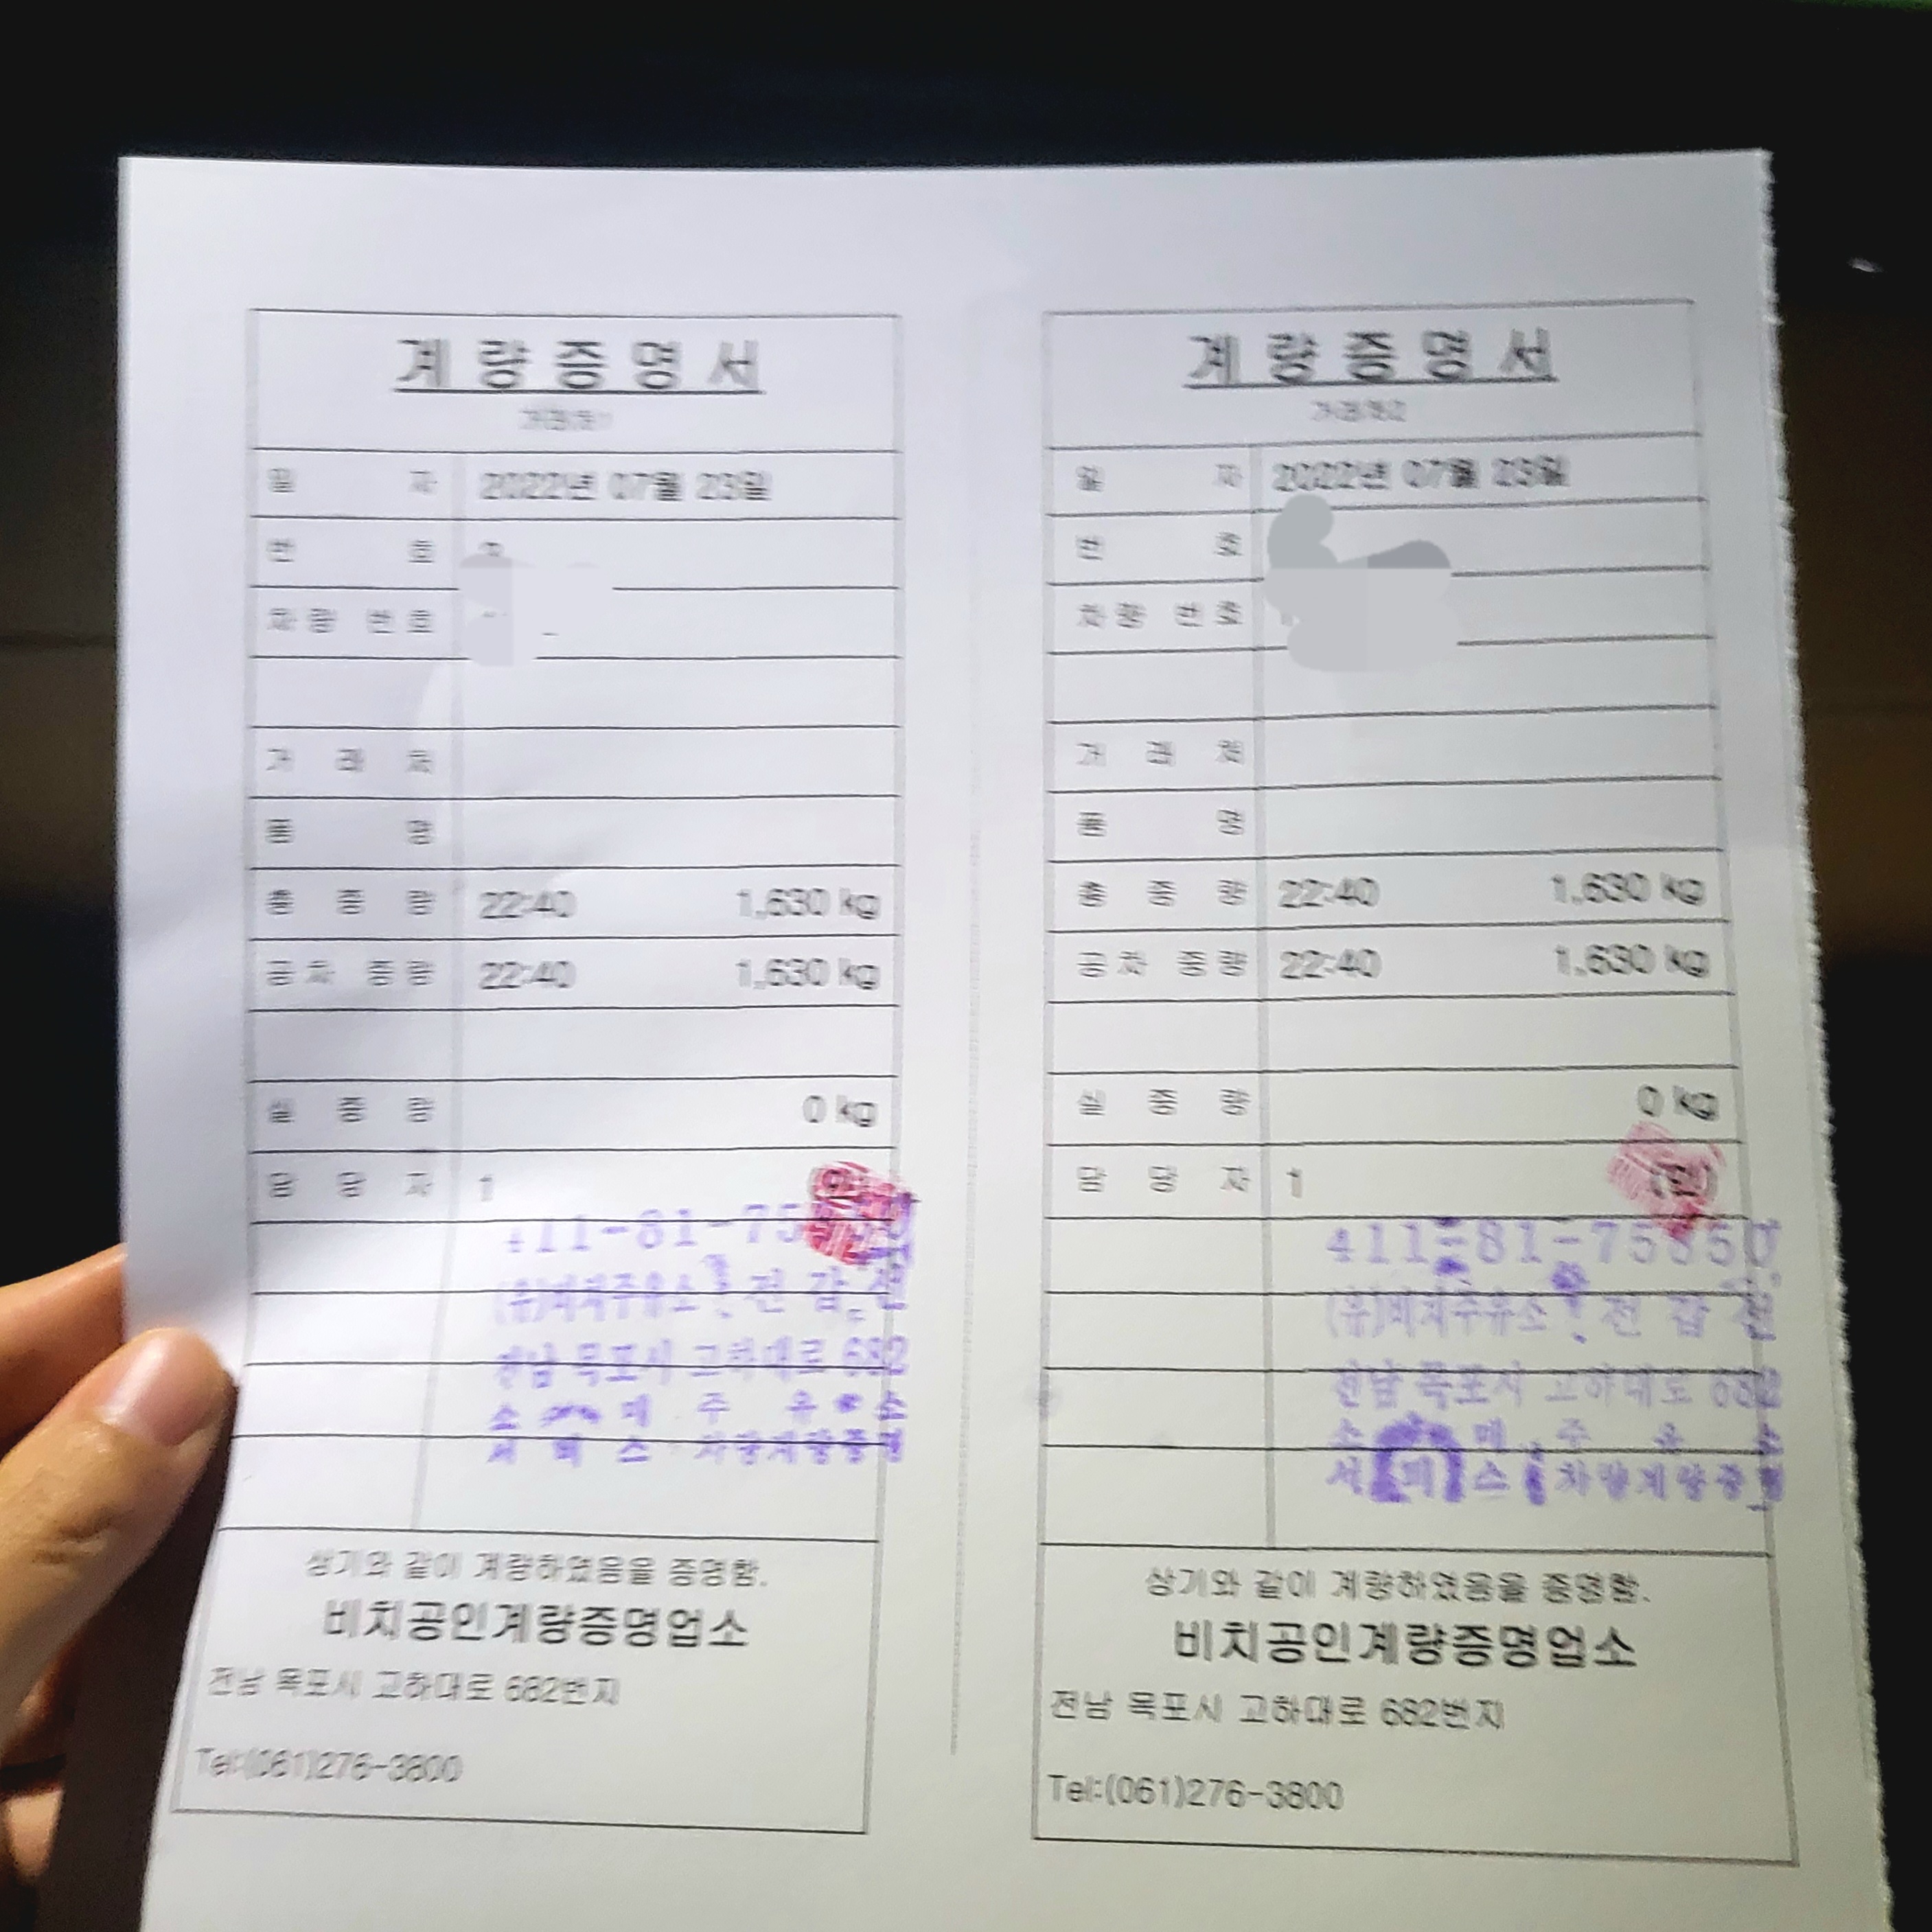 계량증명서
일 자 2022년 07월 23일
번 호
차량 번호
거 래 처
품 명
총 중 량 22:40 1,630 kg
공차 중량 22:40 1,630 kg
실 중 량 0 kg
담 당 자 1
(유)비치주유소
전남 목포시 고하대로 682
주 유 소
서 비 스 차량계량증명
상기와 같이 계량하였음을 증명함.
비치공인계량증명업소
전남 목포시 고하대로 682번지
Tel:(061)276-3800
계량증명서
일 자 2022년 07월 23일
번 호
차량 번호
거 래 처
품 명
총 중 량 22:40 1,630 kg
공차 중량 22:40 1,630 kg
실 중 량 0 kg
담 당 자 1 (인)
(유)비치주유소
전남 목포시 고하대로 682
주 유 소
서 비 스 차량계량증명
상기와 같이 계량하였음을 증명함.
비치공인계량증명업소
전남 목포시 고하대로 682번지
Tel:(061)276-3800